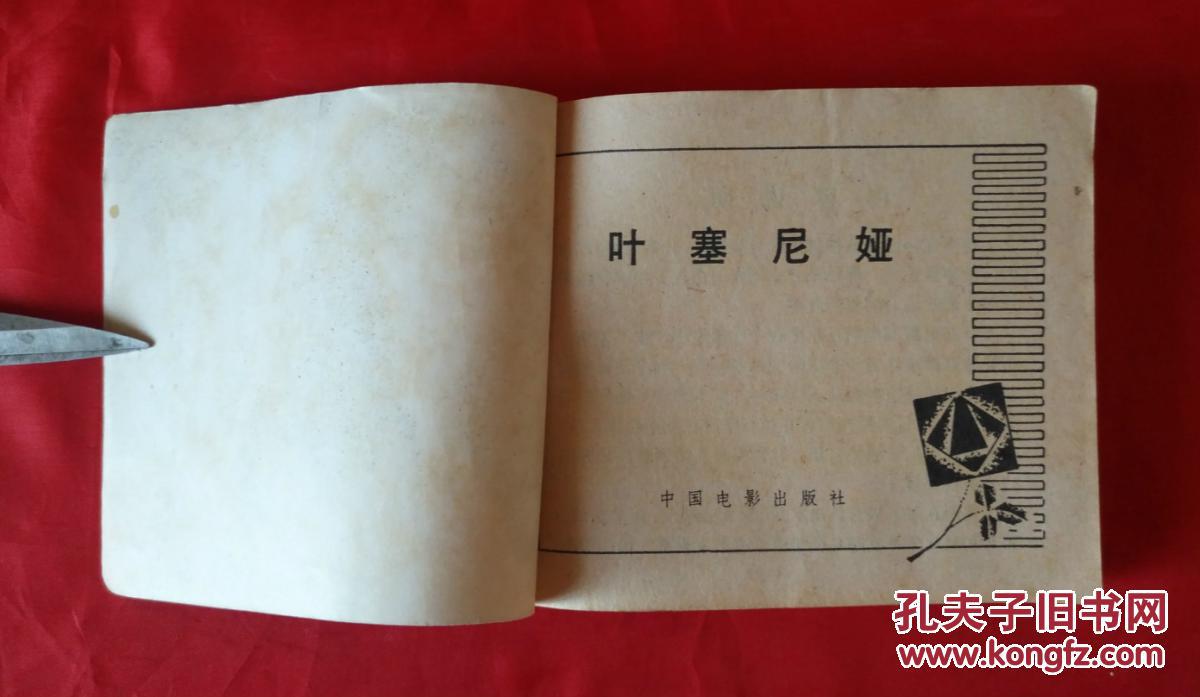 叶塞尼娅
中国电影出版社
孔夫子旧书网
www.kongfz.com